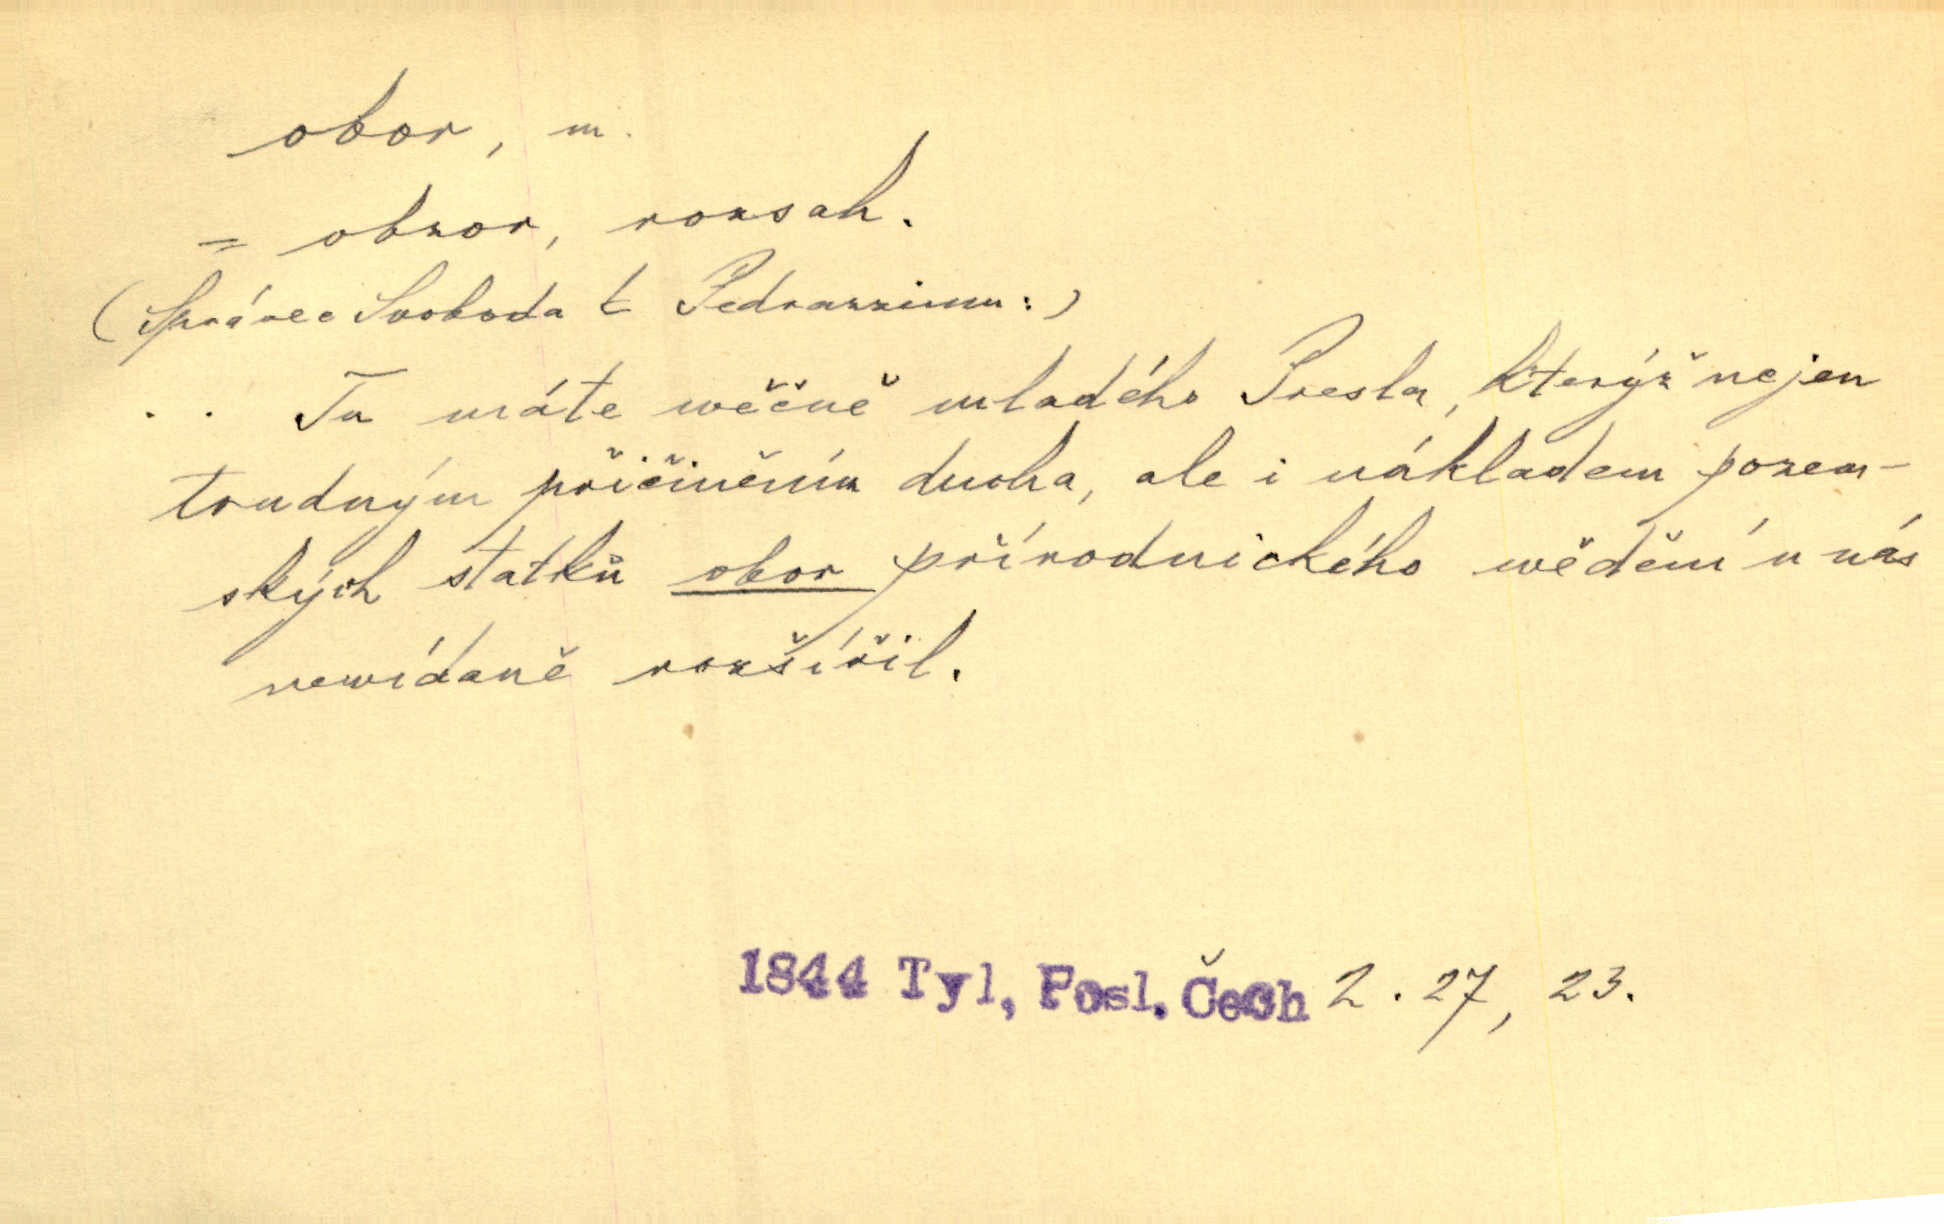 obor, m.
= obzor, rozsah.
(Správec Svoboda k Pedrazzimu:)
.. Tu máte wěčně mladého Presla, kterýž nejen
trudným přičiněním ducha, ale i nákladem pozem-
ských statků obor přírodnického wědění u nás
newídaně rozšířil.
1844 Tyl, Posl. Čech 2. 27, 23.